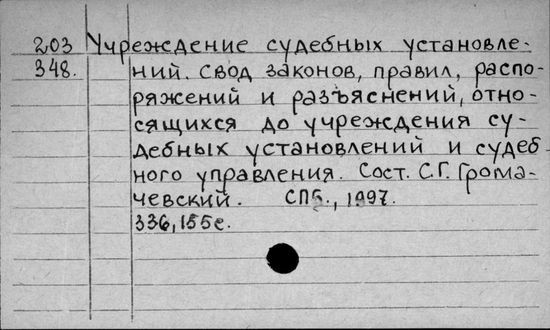 203 Учреждение судебных установле-
348. ний. Свод законов, правил, распо-
ряжений и разъяснений, отно-
сящихся до учреждения су-
дебных установлений и судеб
ного управления. Сост. С.Г. Грома-
чевский. СПб., 1997.
336, 155 с.